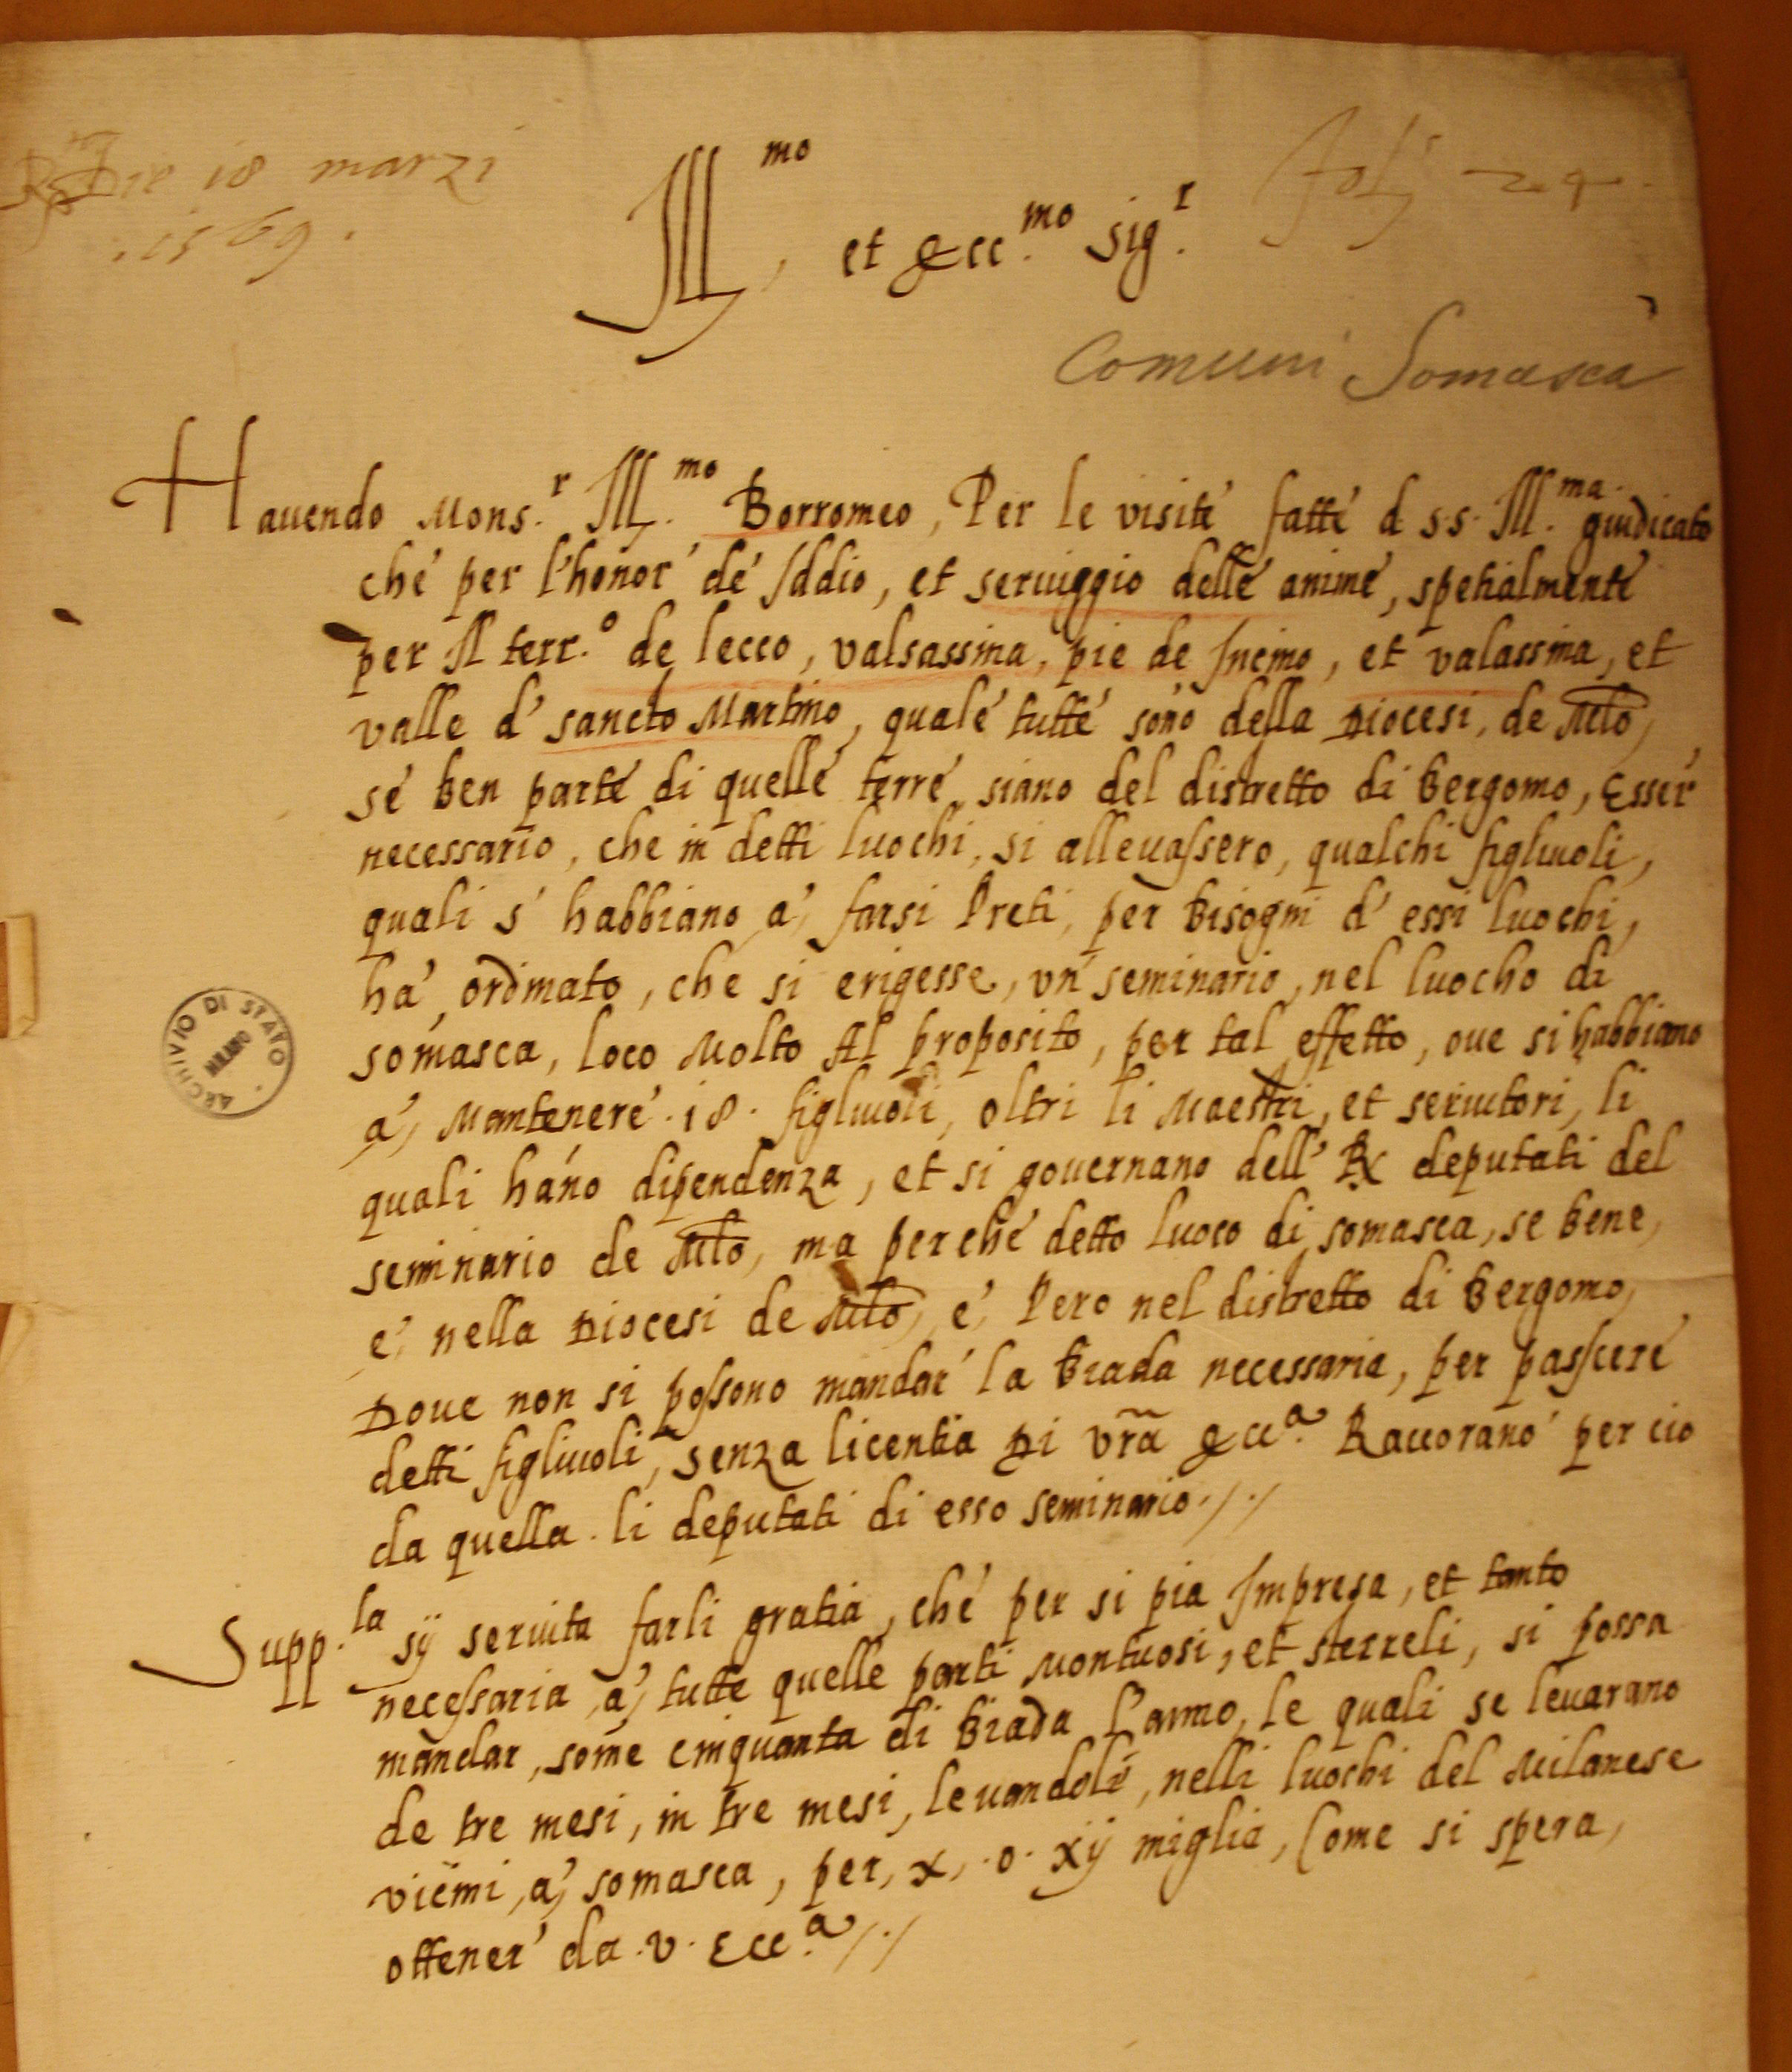 Die 18 marzi
1569.
Ill.mo et Ecc.mo Sig.r
Comuni Somasca
Havendo Mons.r Ill.mo Borromeo, Per le visite fatte d s.s. Ill.ma giudicato
che per l'honor de Iddio, et serviggio delle anime, spetialmente
per Il terr.o de lecco, valsassina, pie de Incino, et valassina, et
valle d' sancto Martino, quale tutte sono della Diocesi, de Mlo,
se ben parte di quelle terre siano del distretto di Bergomo, Esser
necessario, che in detti luochi, si allevassero, qualchi figlivoli,
quali s' habbiano a' farsi Preti, per bisogni d' essi luochi,
ha' ordinato, che si erigesse, un seminario, nel luocho di
somasca, loco Molto Al proposito, per tal effetto, ove si habbiano
a' Mantenere .18. figlivoli, oltri li Maestri, et servitori, li
quali hano dipendenza, et si governano dell' deputati del
seminario de Mlo, ma perche detto luoco di somasca, se bene,
e' nella Diocesi de Mlo, e' Pero nel distretto di Bergomo,
Dove non si possono mandar la biada necessaria, per passcere
detti figlivoli, senza licentia Di vra Ecc.a Racorano per cio
da quella li deputati di esso seminario ./.
Supp.la sij servita farli gratia, che per si pia Impresa, et tanto
necessaria a' tutte quelle parti Montuosi, et sterreli, si possa
mandar, some cinquanta di biada l'anno, le quali se levarano
de tre mesi, in tre mesi, levandole, nelli luochi del Milanese
vicini, a' somasca, per, x, .o. xij miglia, Come si spera,
ottener da .v. Ecc.a ./.
ARCHIVIO DI STATO
MILANO